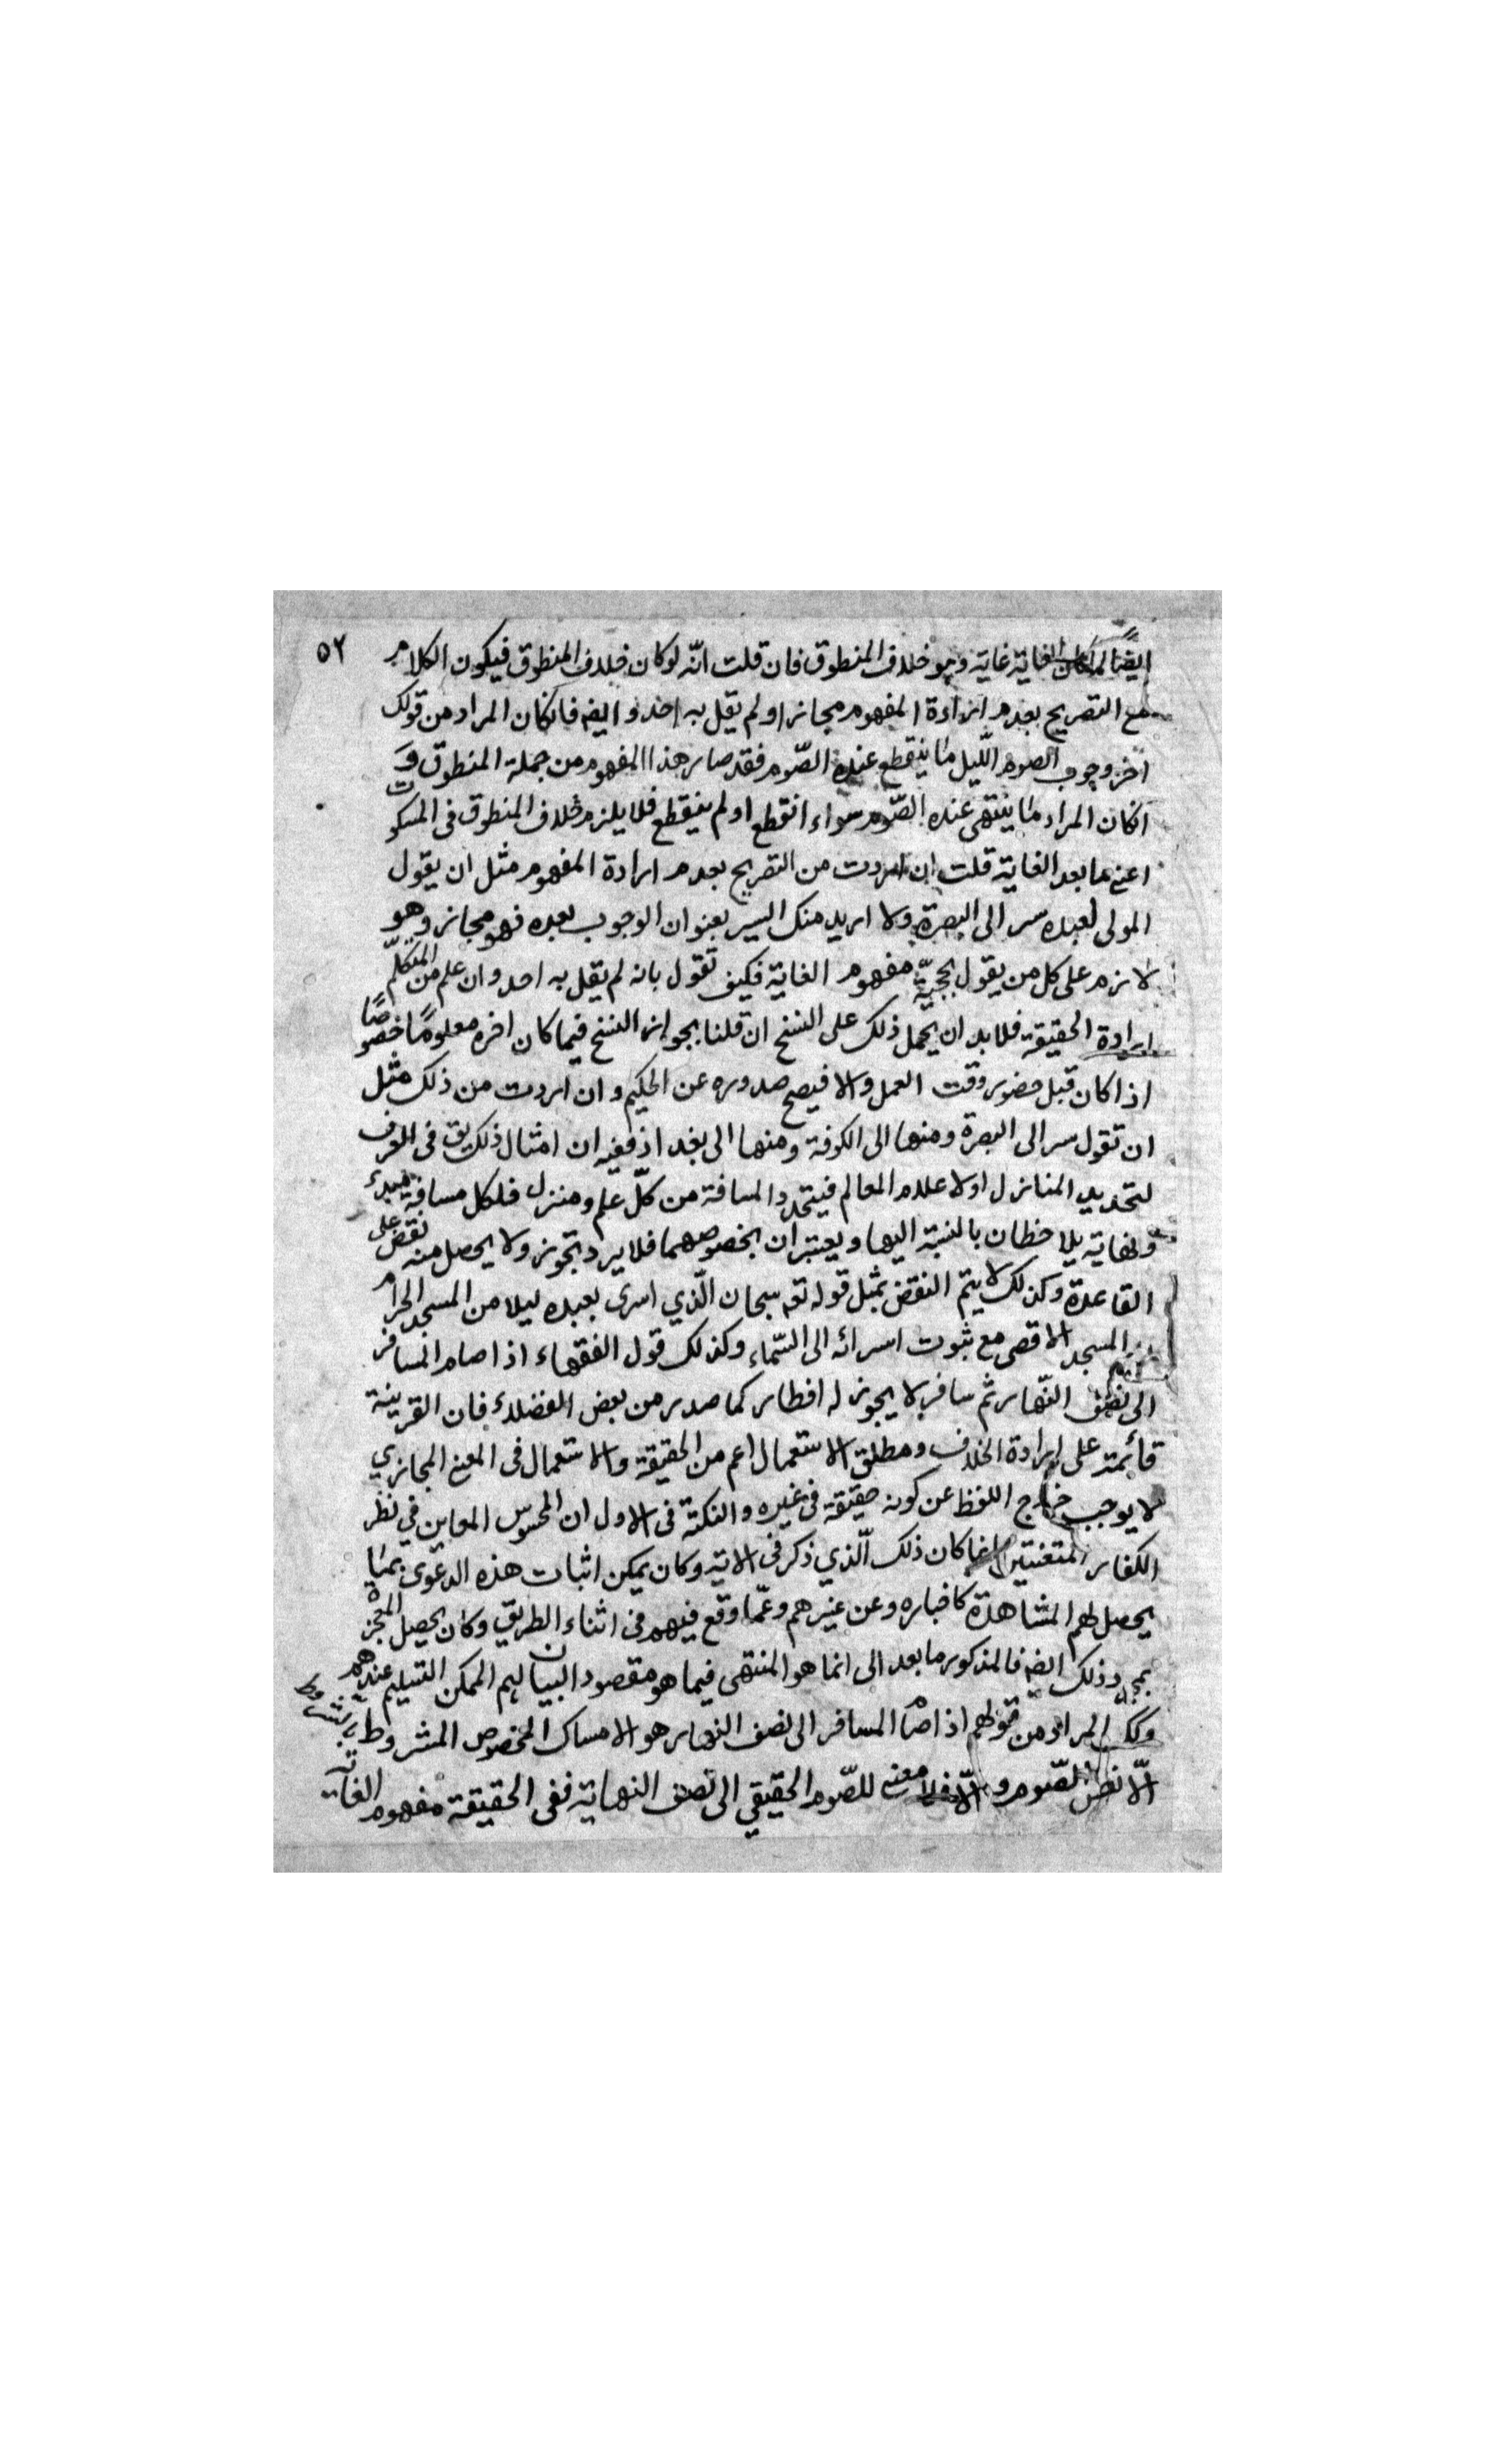 ٥٢
ايضا لما كان الغاية غاية وهو خلاف المنطوق فان قلت انّه لو كان خلاف المنطوق فيكون الكلام
مع التصريح بعدم ارادة المفهوم مجازا ولم يقل به احد وايضه فانكان المراد من قولك
اخر وجوب الصوم اللّيل ما ينقطع عنده الصّوم فقد صار هذا المفهوم من جملة المنطوق و
انكان المراد ما ينتهى عنده الصّوم سواء انقطع او لم ينقطع فلا يلزم خلاف المنطوق فى المسكوت
اعنى ما بعد الغاية قلت ان اردت من التصريح بعدم ارادة المفهوم مثل ان يقول
المولى لعبده سر الى البصرة ولا اريد منك السير بعنوان الوجوب بعده فهو مجاز وهو
لازم على كل من يقول بحجيّة مفهوم الغاية فكيف تقول بانه لم يقل به احد وان علم من المتكلّم
ارادة الحقيقة فلا بد ان يحمل ذلك على النسخ ان قلنا بجواز النسخ فيما كان اخره معلومًا خصوصًا
اذا كان قبل حضور وقت العمل والا فيصح صدوره عن الحكيم وان اردت من ذلك مثل
ان تقول سر الى البصرة ومنها الى الكوفة ومنها الى بغداد ففيه ان امثال ذلك يق فى العرف
لتحديد المنازل اولاعلام المعالم فيتحدد المسافة من كلّ علم ومنزل فلكل مسافة مبدء
ونهاية يلاحظان بالنسبة اليها ويعتبران بخصوصهما فلا يرد تجوز ولا يحصل منه نقض على
القاعدة وكذلك لا يتم النقض بمثل قوله تعه سبحان الّذي اسرى بعبده ليلا من المسجد الحرام
المسجد الاقصى مع ثبوت اسرائه الى السّماء وكذلك قول الفقهاء اذا صام المسافر
الى نصف النّهار ثم سافر لا يجوز له افطار كما صدر من بعض الفضلاء فان القرينة
قائمة على ارادة الخلاف ومطلق الاستعمال اعم من الحقيقة والاستعمال فى المعنى المجازي
لا يوجب خراج اللفظ عن كونه حقيقة فى غيره والنكتة فى الاول ان المحسوس المعاين في نظر
الكفار المتعنتين انما كان ذلك الّذي ذكر فى الاية وكان يمكن اثبات هذه الدعوى بمايا
يحصل لهم المشاهدة كاخباره وعن عيرهم وعمّا وقع فيهم فى اثناء الطريق وكان يحصل المعجزة
بمجرد ذلك ايضه فالمذكور ما بعد الى انما هو المنتهى فيما هو مقصود البيان لهم الممكن التسليم عندهم
وكك المراد من قولهم اذا صام المسافر الى نصف النهار هو الامساك المخصوص المشروط بشروط
الصّوم والّا فلا معنى للصّوم الحقيقي الى نصف النهاية ففى الحقيقة مفهوم الغاية